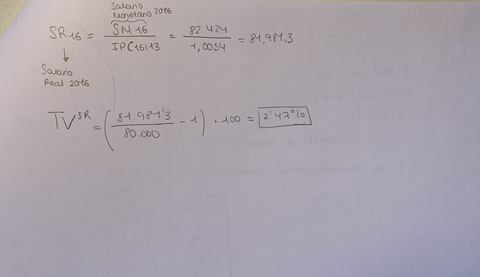 Salario
Monetario 2016
SR16 = SM16 / IPC16|13 = 82.424 / 1,0054 = 81.981,3
Salario
Real 2016
TV^SR = (81.981'3 / 80.000 - 1) · 100 = 2'47%